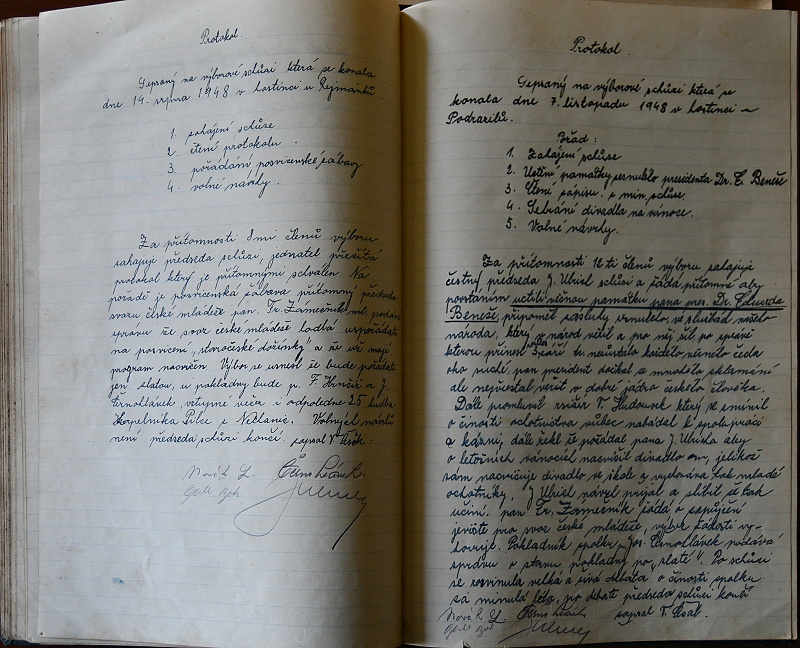 Protokol.
Sepsaný na výborové schůzi která se konala
dne 14. srpna 1948 v hostinci u Rejmánků
1. zahájení schůze
2. čtení protokolu.
3. pořádání posvícenské zábavy
4. volné návrhy.
Za přítomnosti 8mi členů výboru
zahajuje předseda schůzi, jednatel přečítá
protokol který je přítomnými schválen. Na
pořadě je posvícenská zábava přítomný předseda
svazu české mládeže pan. Fr. Zámečník ml. podává
zprávu že svaz české mládeže hodlá uspořádati
na posvícení „staročeské dožínky" a že už mají
program nacvičen. Výbor se usnesl že bude pořádati
jen zlatou, u pokladny bude p. F. Hrnčář a J.
Černohlávek, vstupné večer i odpoledne 25 hudba
kapelníka z Neklanic. Volných návrhů
není předseda schůzi končí. zapsal V. Cisář.
Protokol.
Sepsaný na výborové schůzi která se
konala dne 7. listopadu 1948 v hostinci u
Podrazilů.
Pořad:
1. Zahájení schůze
2. Uctění památky zesnulého presidenta Dr. E. Beneše
3. Čtení zápisu z min. schůze.
4. Sehrání divadla na vánoce.
5. Volné návrhy.
Za přítomnosti 12ti členů výboru zahajuje
čestný předseda J. Ulrich schůzi a žádá přítomné aby
povstáním uctili věčnou památku pana pres. Dr. Eduarda
Beneše, připomněl zásluhy zesnulého, ve službách našeho
národa, který v národ věřil a po něj žil, po zprávě
kterou přinesl neustalo každého věrného čecha
oko suché, pan president dočkal se mnohého zklamání
ale nepřestal věřit v dobré jádro českého člověka.
Dále promluvil režisér V. Hudousek který se zmínil
o činnosti ochotnictva vůbec nabádal k spolupráci
a kázni, dále řekl že požádal pana J. Ulricha aby
o letošních vánocích nacvičil divadlo on, jelikož
sám nacvičuje divadlo ve škole a vychovává tak mladé
ochotníky. J. Ulrich návrh přijal a slíbil že tak
učiní. pan Fr. Zámečník žádá o zapůjčení
jeviště pro svaz české mládeže, výbor žádosti vy-
hovuje. Pokladník spolku Jos. Černohlávek podává
zprávu o stavu pokladny po „zlaté". Po schůzi
se rozvinula velká a živá debata o činosti spolku
za minulá léta, po debatě předseda schůzi končí
zapsal V. Cisář.